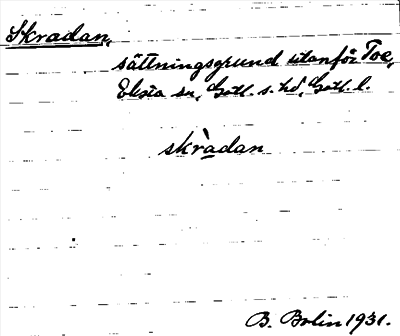 Skradan,
sättningsgrund utanför Toe,
Eksta sn, Gotl. s. hd, Gotl. l.
skràdan
B. Bolin 1931.